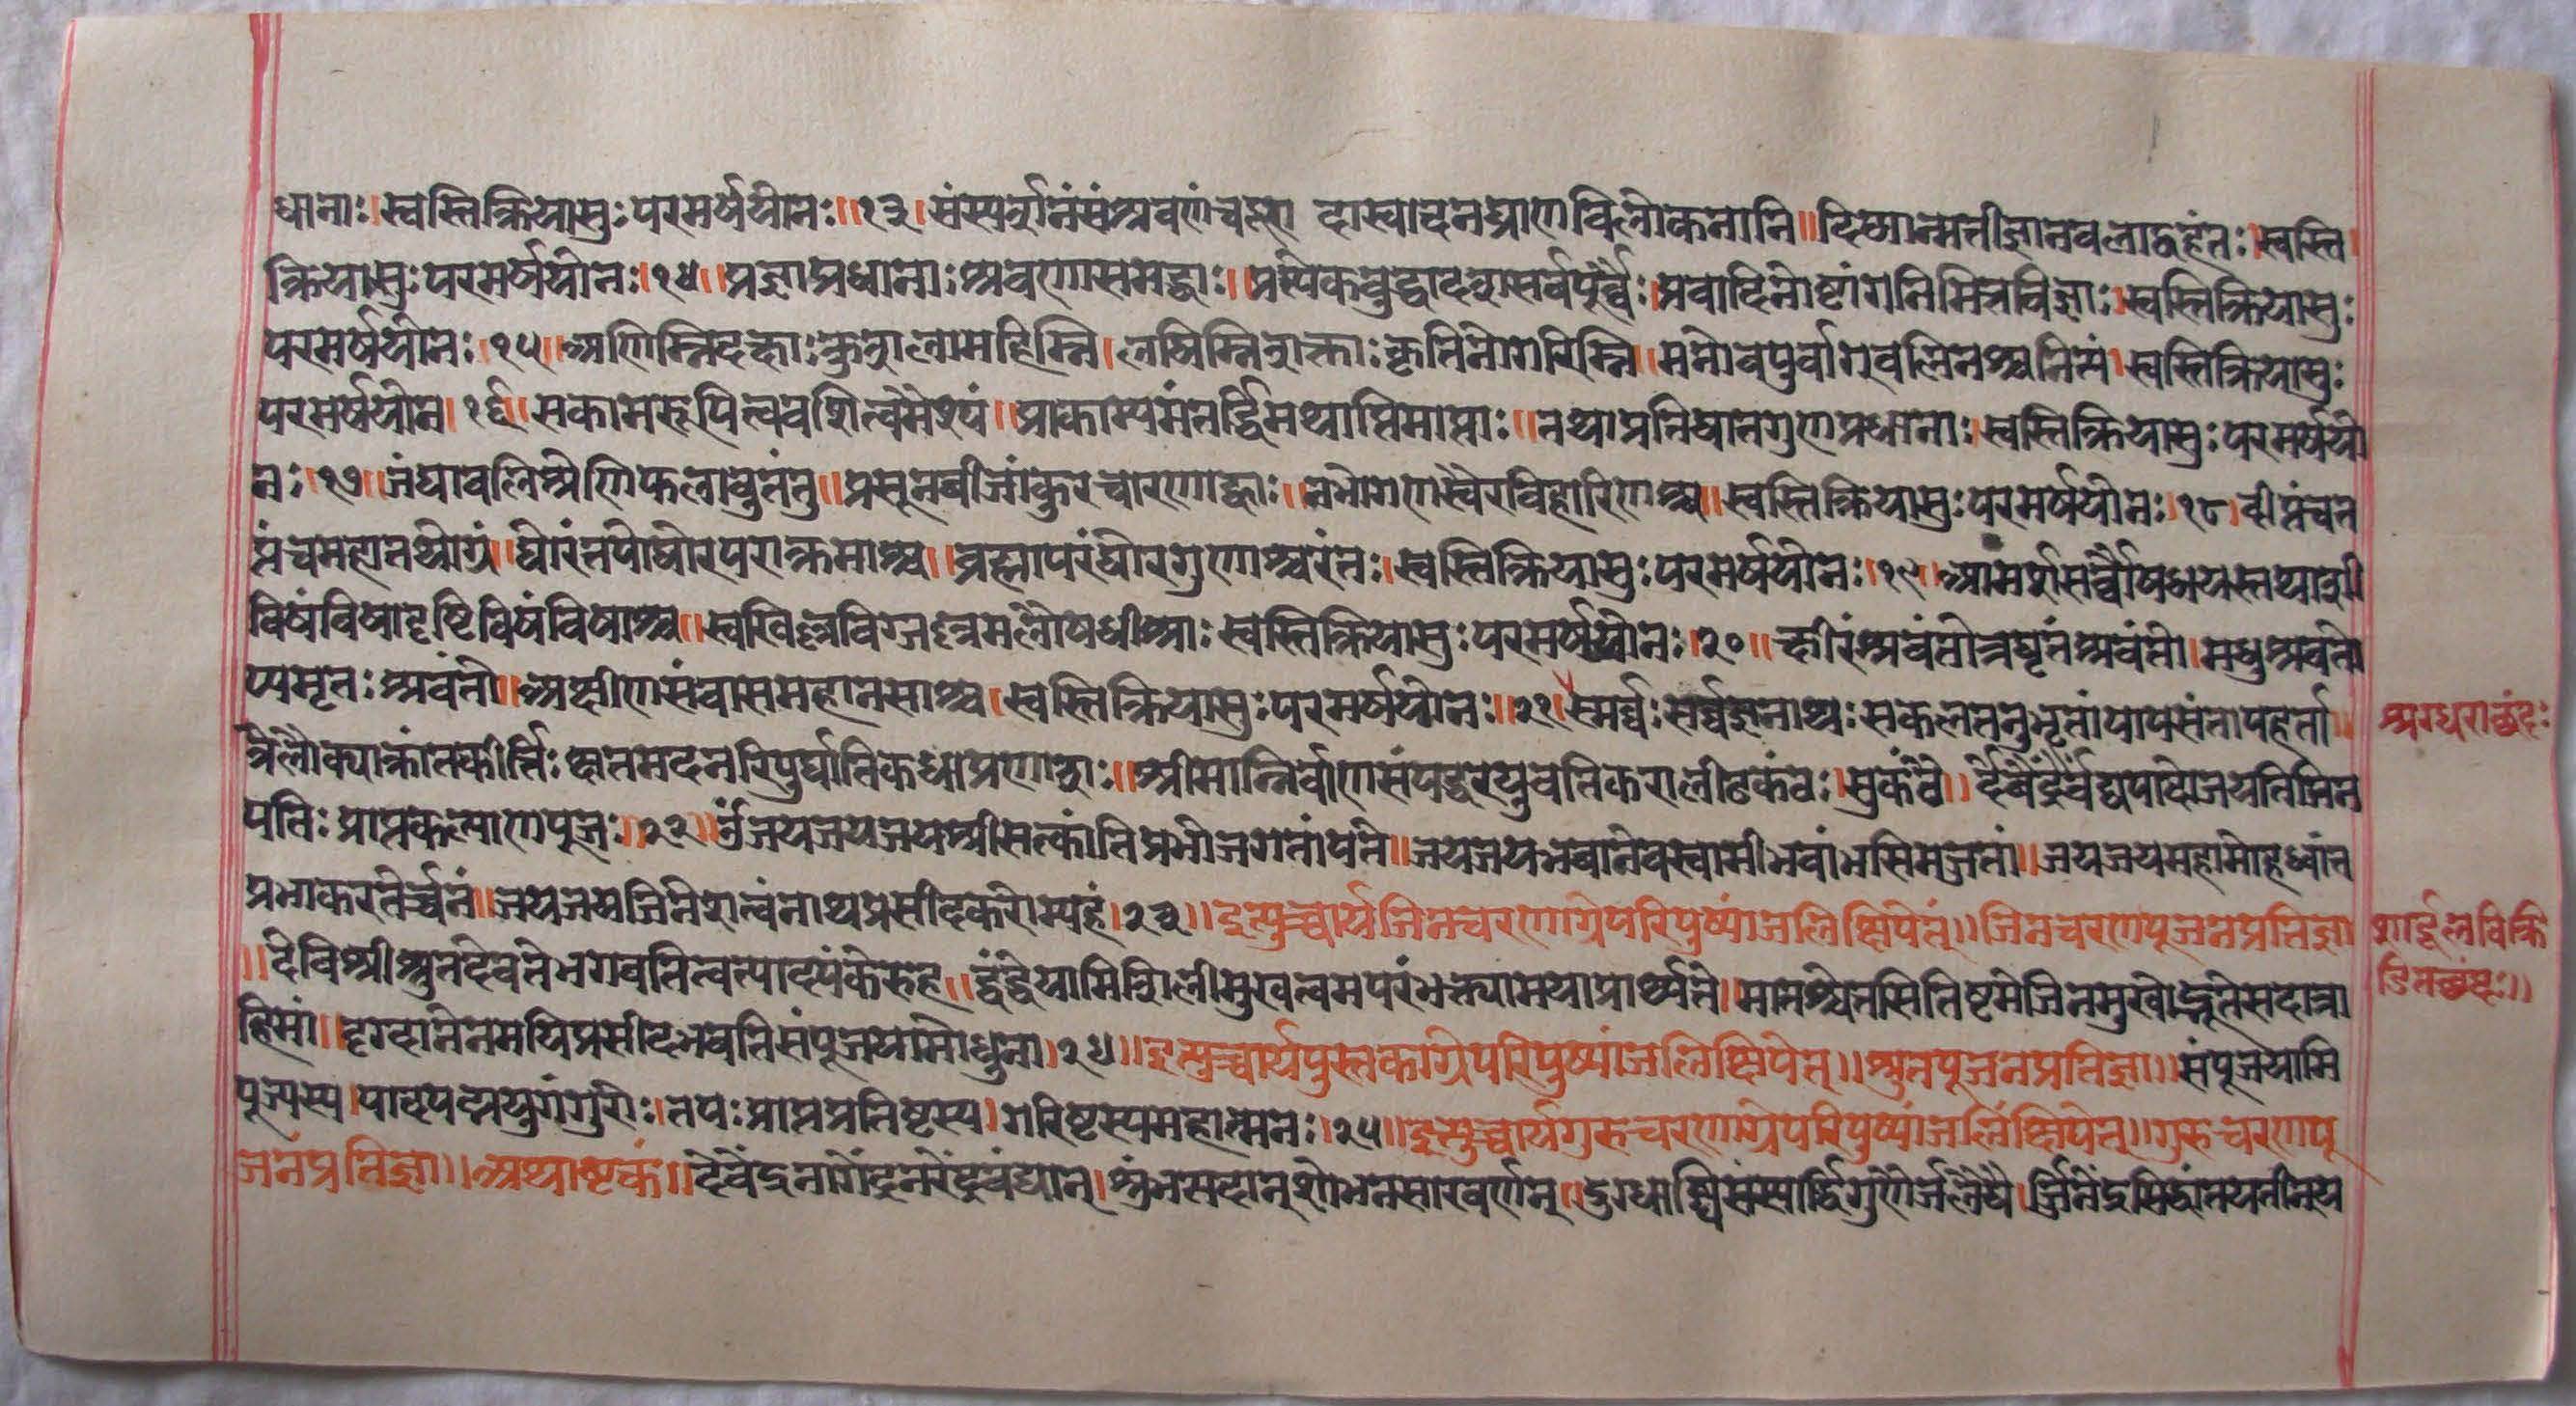 धानाः।स्वस्तिक्रियासुः परमर्षयोनः॥१३॥संस्पर्शनंसंश्रवणंचदूरा दास्वादनघ्राणविलोकनानि॥दिव्यान्मतीज्ञानबलाद्वहंतः।स्वस्ति
क्रियासुःपरमर्षयोनः॥१४॥प्रज्ञाप्रधानाःश्रवणासमृद्धाः॥प्रत्येकबुद्धादशसर्वपूर्वैः।प्रवादिनोष्टांगनिमित्तविज्ञाः।स्वस्तिक्रियासुः
परमर्षयोनः॥१५॥अणिम्निदक्षाःकुशलामहिम्नि।लघिम्निशक्ताःकृतिनोगरिम्नि॥मनोवपुर्वाग्बलिनश्चनित्यं।स्वस्तिक्रियासुः
परमर्षयोन॥१६॥सकामरूपित्ववशित्वमैश्यं॥प्राकाम्यमंतर्द्धिमथाप्तिमाप्ताः॥तथाप्रतिघातगुणप्रधानाः।स्वस्तिक्रियासुःपरमर्षयो
नः॥१७॥जंघावलिश्रेणिफलांबुतंतु॥प्रसूनबीजांकुरचारणाह्वाः॥नभोगणस्वैरविहारिणश्च॥स्वस्तिक्रियासुःपरमर्षयोनः॥१८॥दीप्तंचत
प्तंचमहातथोग्रं॥घोरंतपोघोरपराक्रमाश्च॥ब्रह्मापरंघोरगुणाश्चरंतः।स्वस्तिक्रियासुःपरमर्षयोनः॥१९॥आमर्शसर्वौषधयस्तथाशी
विषंविषादृष्टिविषंविषाश्च॥सखिल्लविड्जल्लमलौषधीशाः।स्वस्तिक्रियासुःपरमर्षयोनः॥२०॥क्षीरंश्रवंतोत्रघृतंश्रवंतो॥मधुश्रवंतो
प्यमृतःश्रवंतो॥अक्षीणसंवासमहानसाश्च।स्वस्तिक्रियासुःपरमर्षयोनः॥२१॥स्मर्वः सर्वज्ञनाथःसकलतनुभृतांपापसंतापहर्ता॥
त्रैलोक्याक्रांतकीर्त्तिःक्षतमदनरिपुर्घातिकर्मप्रणाशः॥श्रीमान्निर्वाणसंपद्वरयुवतिकरालीढकंठः।सुकंठै॥र्देवेंद्रैर्वंद्यपादोजयतिजिन
पतिःप्राप्तकल्याणपूजः॥२२॥जयजयजयश्रीसत्कांतिप्रभोजगतांपते॥जयजयभवानेवस्वामीभवांभसिमज्जतां॥जयजयमहामोहध्वांत
प्रभाकरतेर्च्चनं॥जयजयजिनेशत्वंनाथप्रसीदकरोम्यहं॥२३॥इत्युच्चार्यजिनचरणाग्रेपरिपुष्पांजलिंक्षिपेत्॥जिनचरणपूजनप्रतिज्ञा
॥देविश्रीश्रुतदेवतेभगवतित्वत्पादपंकेरुह॥द्वंद्वेयामिशिलीमुखत्वमपरंभक्त्यामयाप्रार्थ्यते॥मातश्चेतसितिष्टमेजिनमुखोद्भूतेसदात्रा
हिमां॥दृग्दानेनमयिप्रसीदभवतिसंपूजयामोधुना॥२४॥इत्युच्चार्यपुस्तकाग्रेपरिपुष्पांजलिंक्षिपेत्॥श्रुतपूजनप्रतिज्ञा॥संपूजयामि
पूज्यस्य।पादपद्मयुगंगुरोः।तपःप्राप्तप्रतिष्टस्य।गरिष्टस्यमहात्मनः॥२५॥इत्युच्चार्यगुरुचरणाग्रेपरिपुष्पांजलिंक्षिपेत्॥गुरुचरणपू
जनंप्रतिज्ञा॥अथाष्टकं॥देवेंद्रनागेंद्रनरेंद्रवंद्यान्।शुंभत्पदान्शोभनसारवर्णान्॥दुग्धाब्धिसंस्पर्द्धिगुणैर्जलौघै।र्जिनेंद्रसिद्धांतयतीन्य
श्रग्धराछंदः
शार्दूलविक्रि
डितछंदः॥